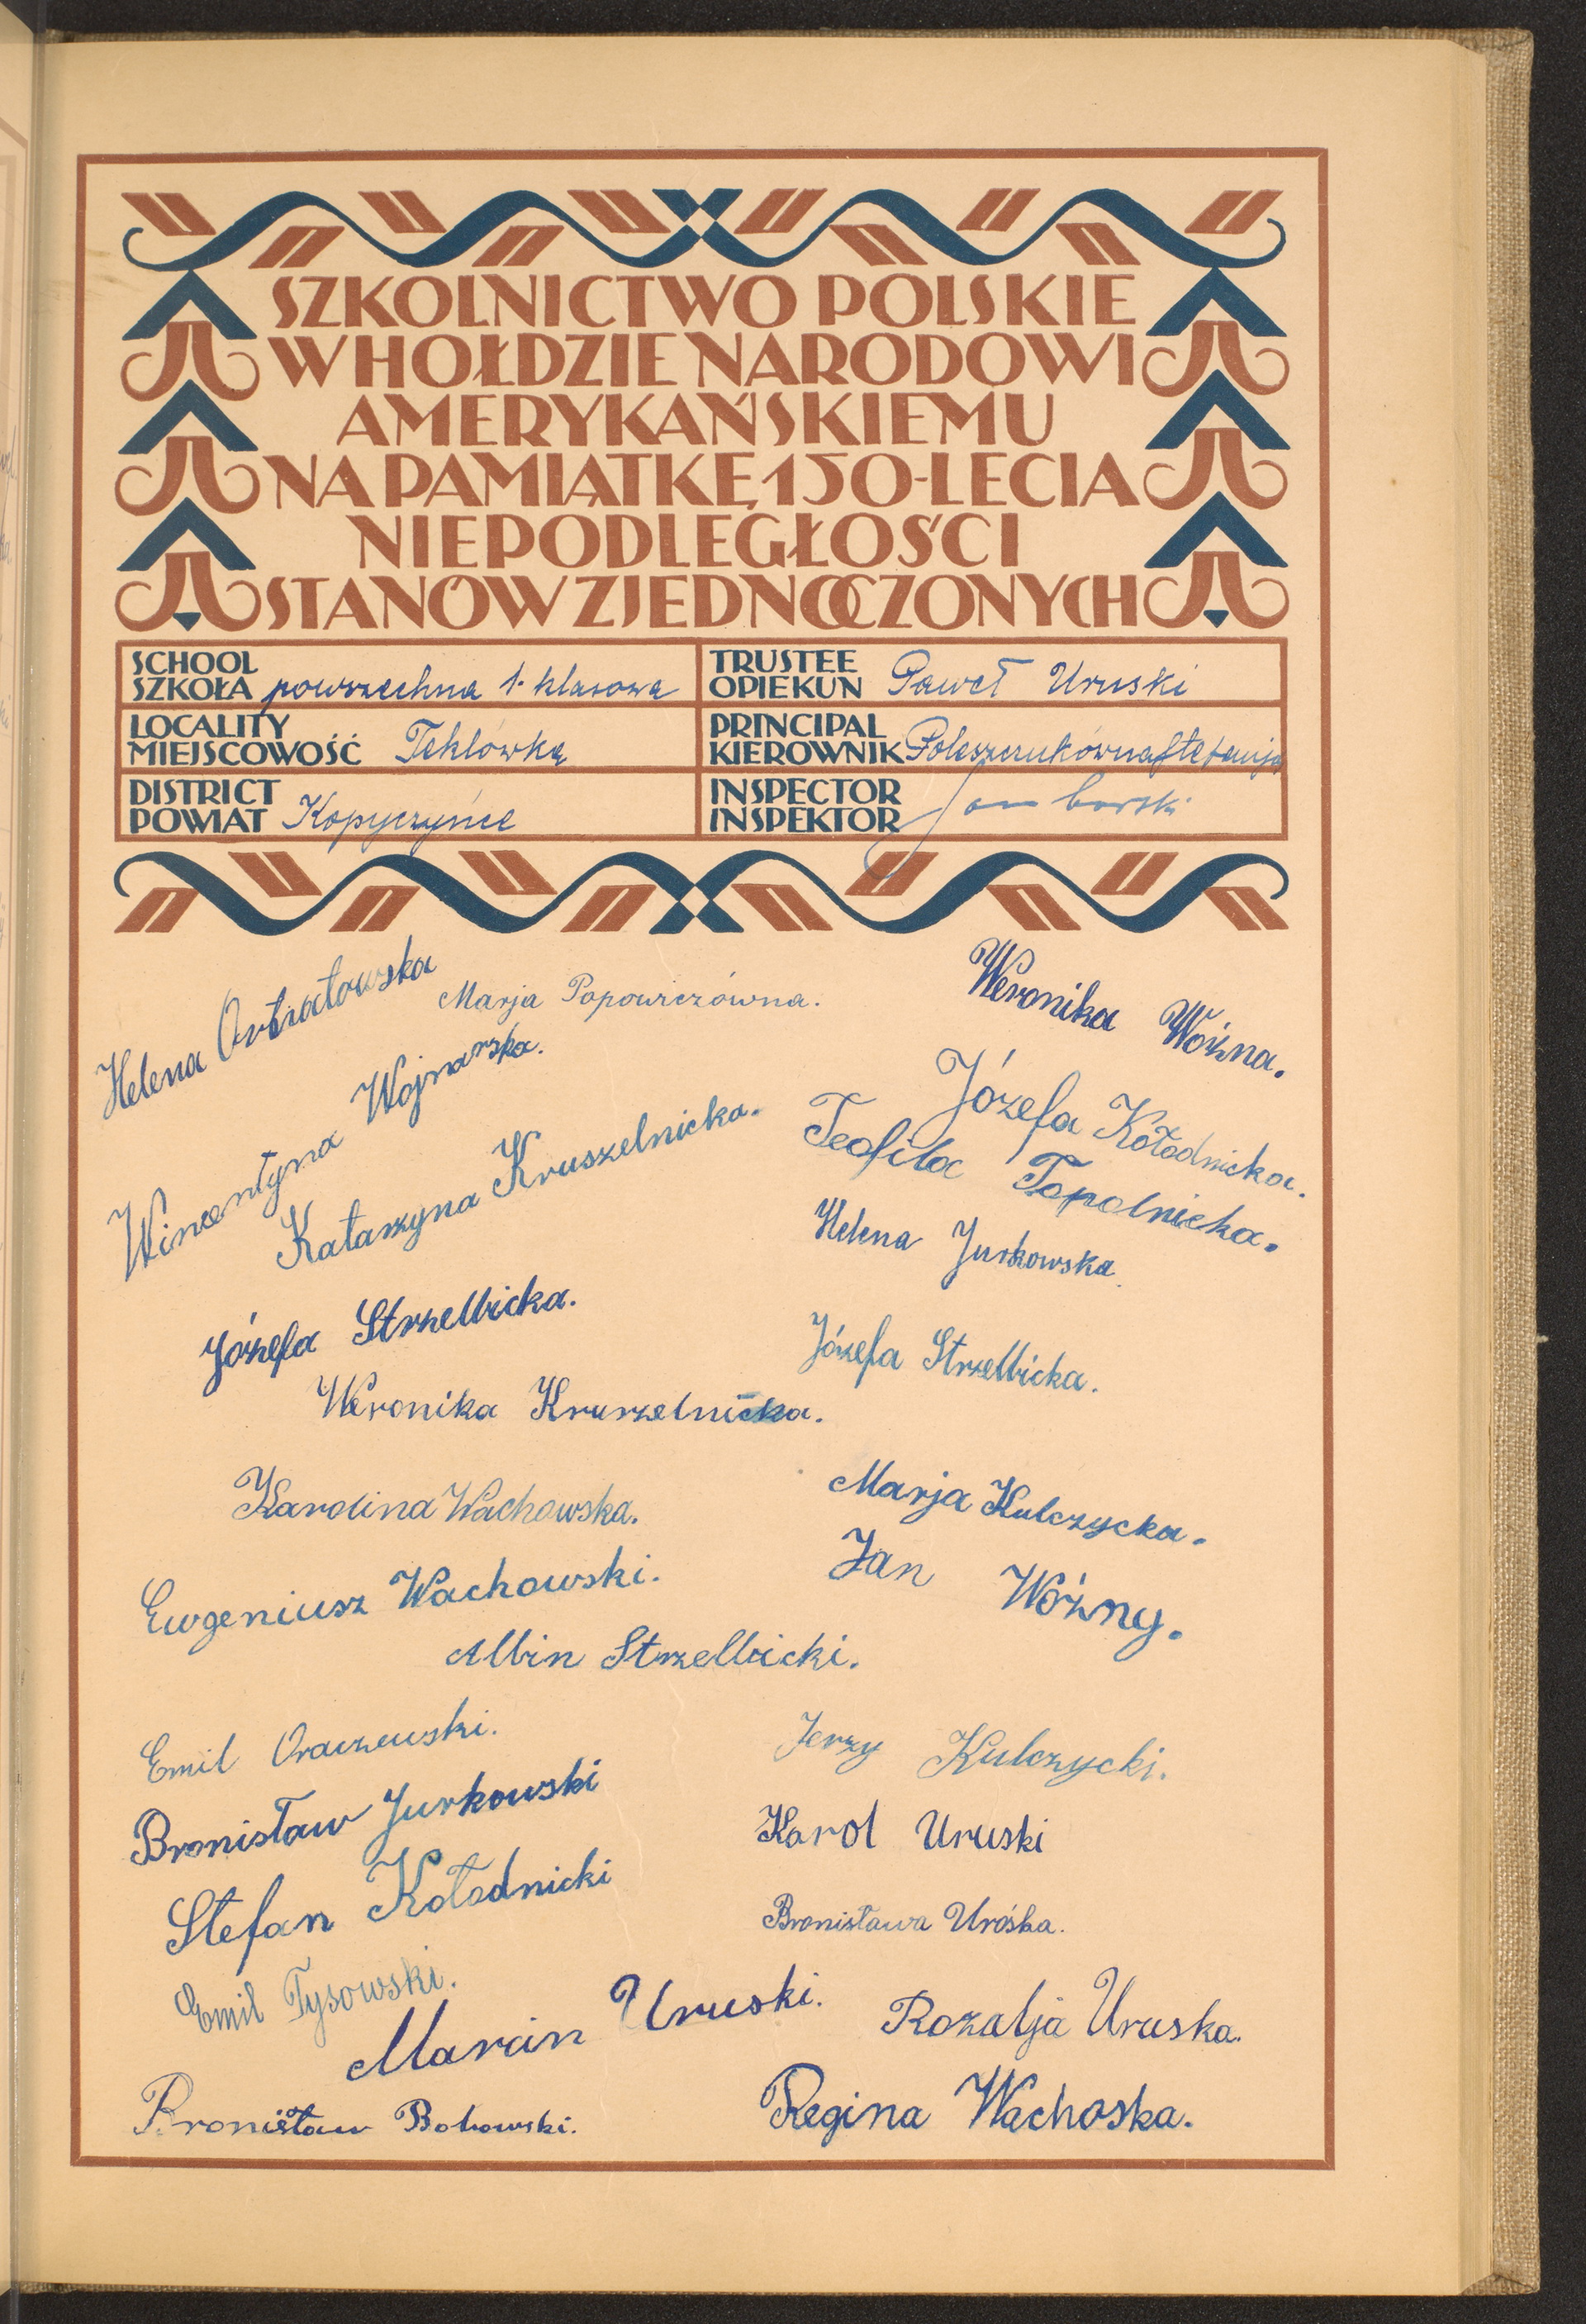 SZKOLNICTWO POLSKIE
W HOŁDZIE NARODOWI
AMERYKAŃSKIEMU
NA PAMIĄTKĘ 150-LECIA
NIEPODLEGŁOŚCI
STANÓW ZJEDNOCZONYCH
SCHOOL
SZKOŁA powszechna 1. klasowa
TRUSTEE
OPIEKUN Paweł Uruski
LOCALITY
MIEJSCOWOŚĆ Teklówka
PRINCIPAL
KIEROWNIK Poleszczukówna Stefanja
DISTRICT
POWIAT Kopyczyńce
INSPECTOR
INSPEKTOR
Helena
Marja Popowiczówna.
Weronika Woźna.
Wincentyna Wojnarska.
Józefa Kołodnicka.
Katarzyna Kruszelnicka.
Teofila Topolnicka.
Helena Jurkowska
Józefa Strzelbicka.
Józefa Strzelbicka.
Weronika Kruszelnicka.
Karolina Wachowska.
Marja Kulczycka.
Jan Woźny.
Ewgeniusz Wachowski.
Albin Strzelbicki.
Emil Oraczewski.
Jerzy Kulczycki.
Bronisław Jurkowski
Karol Uruski
Stefan Kołodnicki
Bronisława Uróska.
Emil Tysowski.
Marcin Uruski.
Rozalja Uruska.
Bronisław Bohowski.
Regina Wachoska.